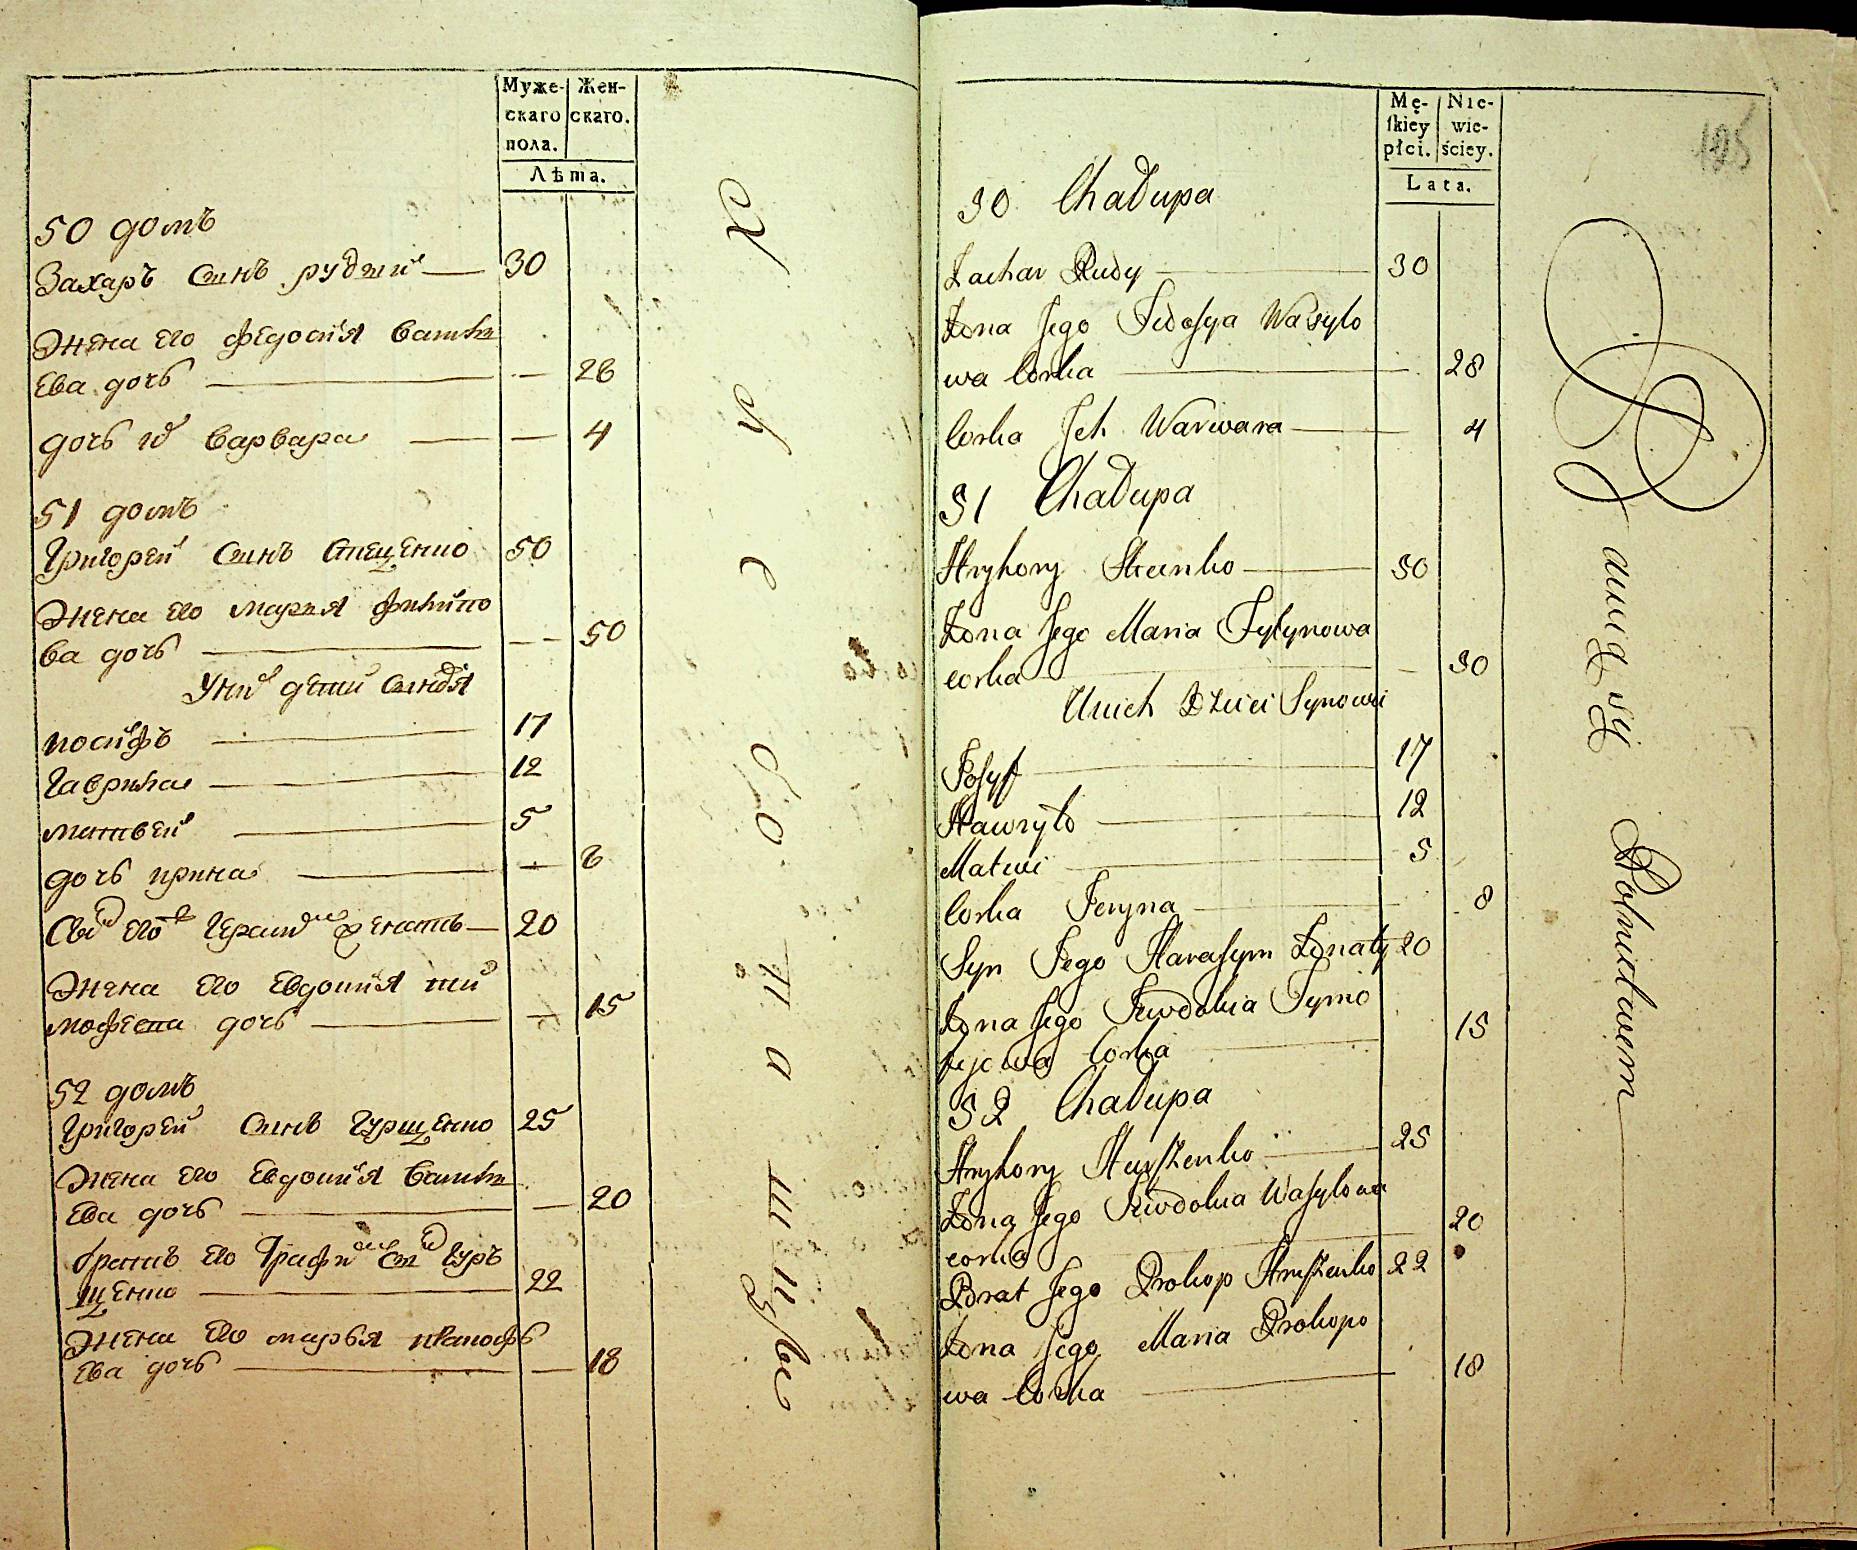 Муже-
скаго
пола.
Жен-
скаго.
Лѣта.
50 домъ
Захаръ синъ рудий 30
Жена его федосия василь
ева дочь 28
дочь их варвара 4
51 домъ
Григорей синъ стеценко 50
Жена его мария филипо
ва дочь 50
У них дети синовя
иосифъ 17
Гаврила 12
матвей 5
дочь ирина 8
Син его Герасим женатъ 20
Жена его Евдокия ти
мофеева дочь 15
52 домъ
Григорей синъ Гурщенко 25
Жена его Евдокия василь
ева дочь 20
братъ его
щенко 22
Жена его марья
ева дочь 18
Mę-
skiey
płci.
Nie-
wie-
ściey.
Lata.
125
50 Chałupa
Zachar Rudy 30
Zona Jego Fedosya Wasylo
wa Corka 28
Corka Jch Warwara 4
51 Chałupa
Hryhory Stecenko 50
Zona Jego Maria Fylypowa
corka 50
U nich Dzieci Synowie
Josyf 17
Hawryło 12
Matwi 5
Corka Jeryna 8
Syn Jego Harasym Zonaty 20
Zona Jego Jewdokia Tymo
fejowa Corka 15
52 Chałupa
Hryhory Hurszenko 25
Zona Jego Jewdokia Wasylowa
corka 20
Brat Jego Prokop Hurszenko 22
Zona Jego Maria Prokopo
wa Corka 18